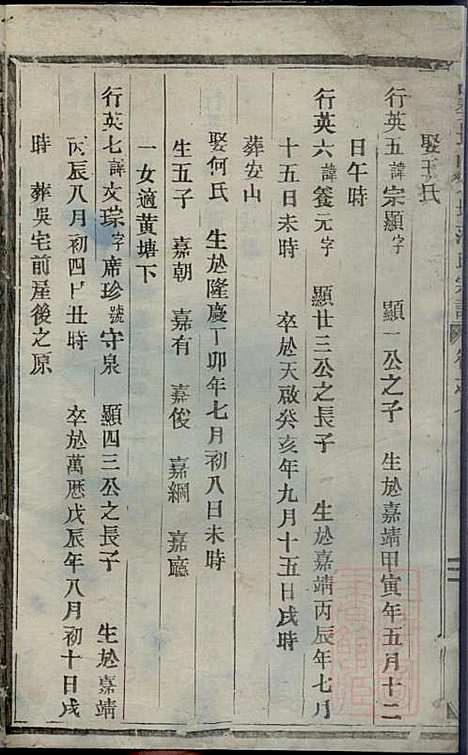 娶王氏
行英五諱宗顯字 顯一公之子 生於嘉靖甲寅年五月十二
日午時
行英六諱養元字 顯廿三公之長子 生於嘉靖丙辰年七月
十五日未時 卒於天啟癸亥年九月十五日戌時
葬安山
娶何氏 生於隆慶丁卯年七月初八日未時
生五子 嘉朝 嘉有 嘉俊 嘉綱 嘉廳
一女適黃塘下
行英七諱文琮字席珍號守泉 顯四三公之長子 生於嘉靖
丙辰八月初四日丑時 卒於萬曆戊辰年八月初十日戌
時 葬吳宅前屋後之原